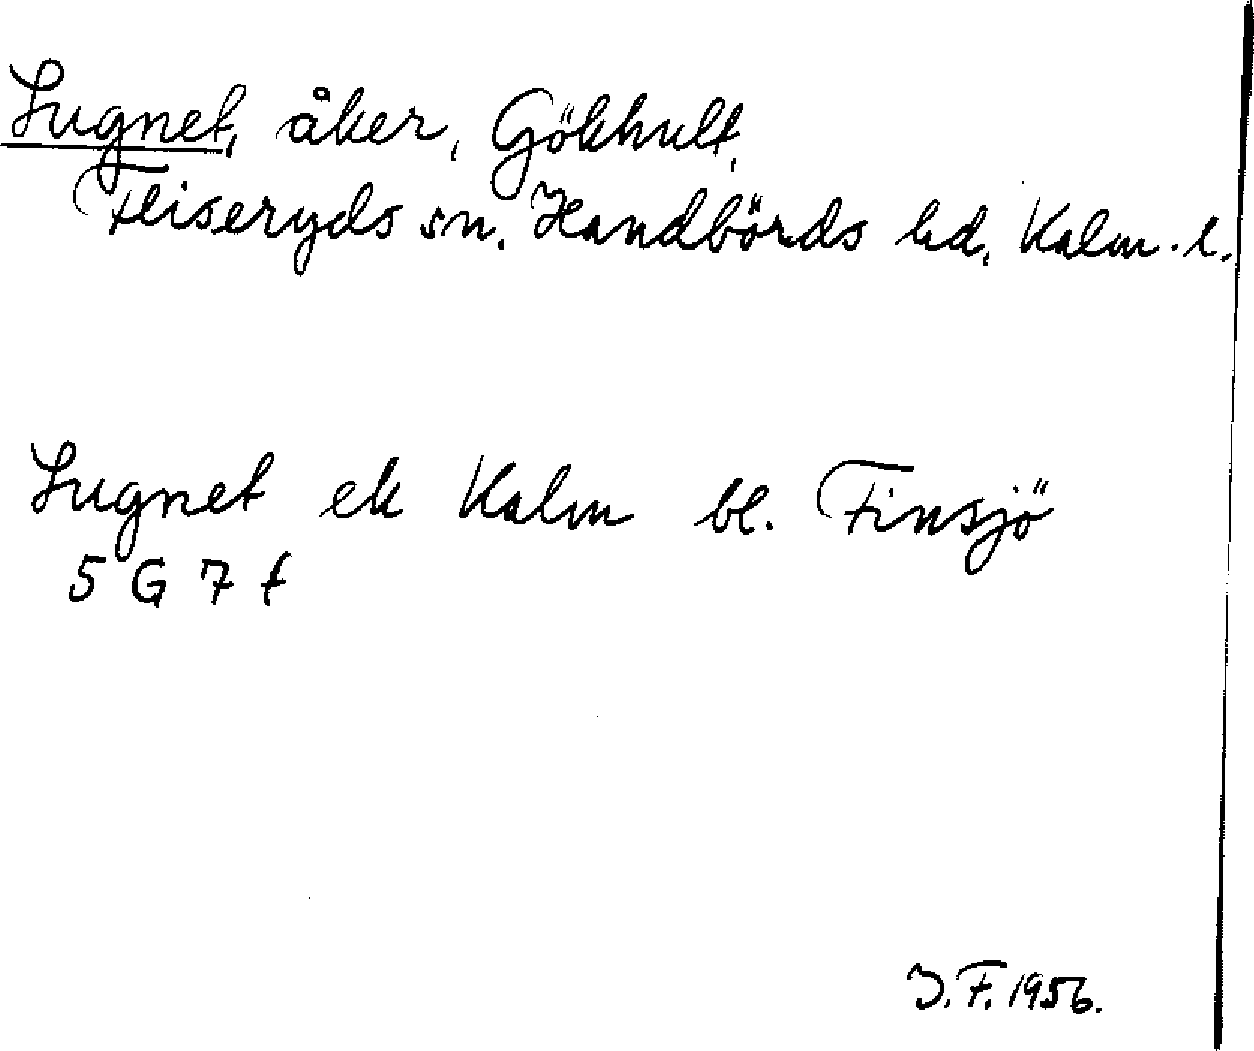 Lugnet, åker, Gökhult,
Fliseryds sn. Handbörds hd, Kalm. l.
Lugnet ek Kalm bl. Finsjö
5 G 7 f
J. F. 1956.